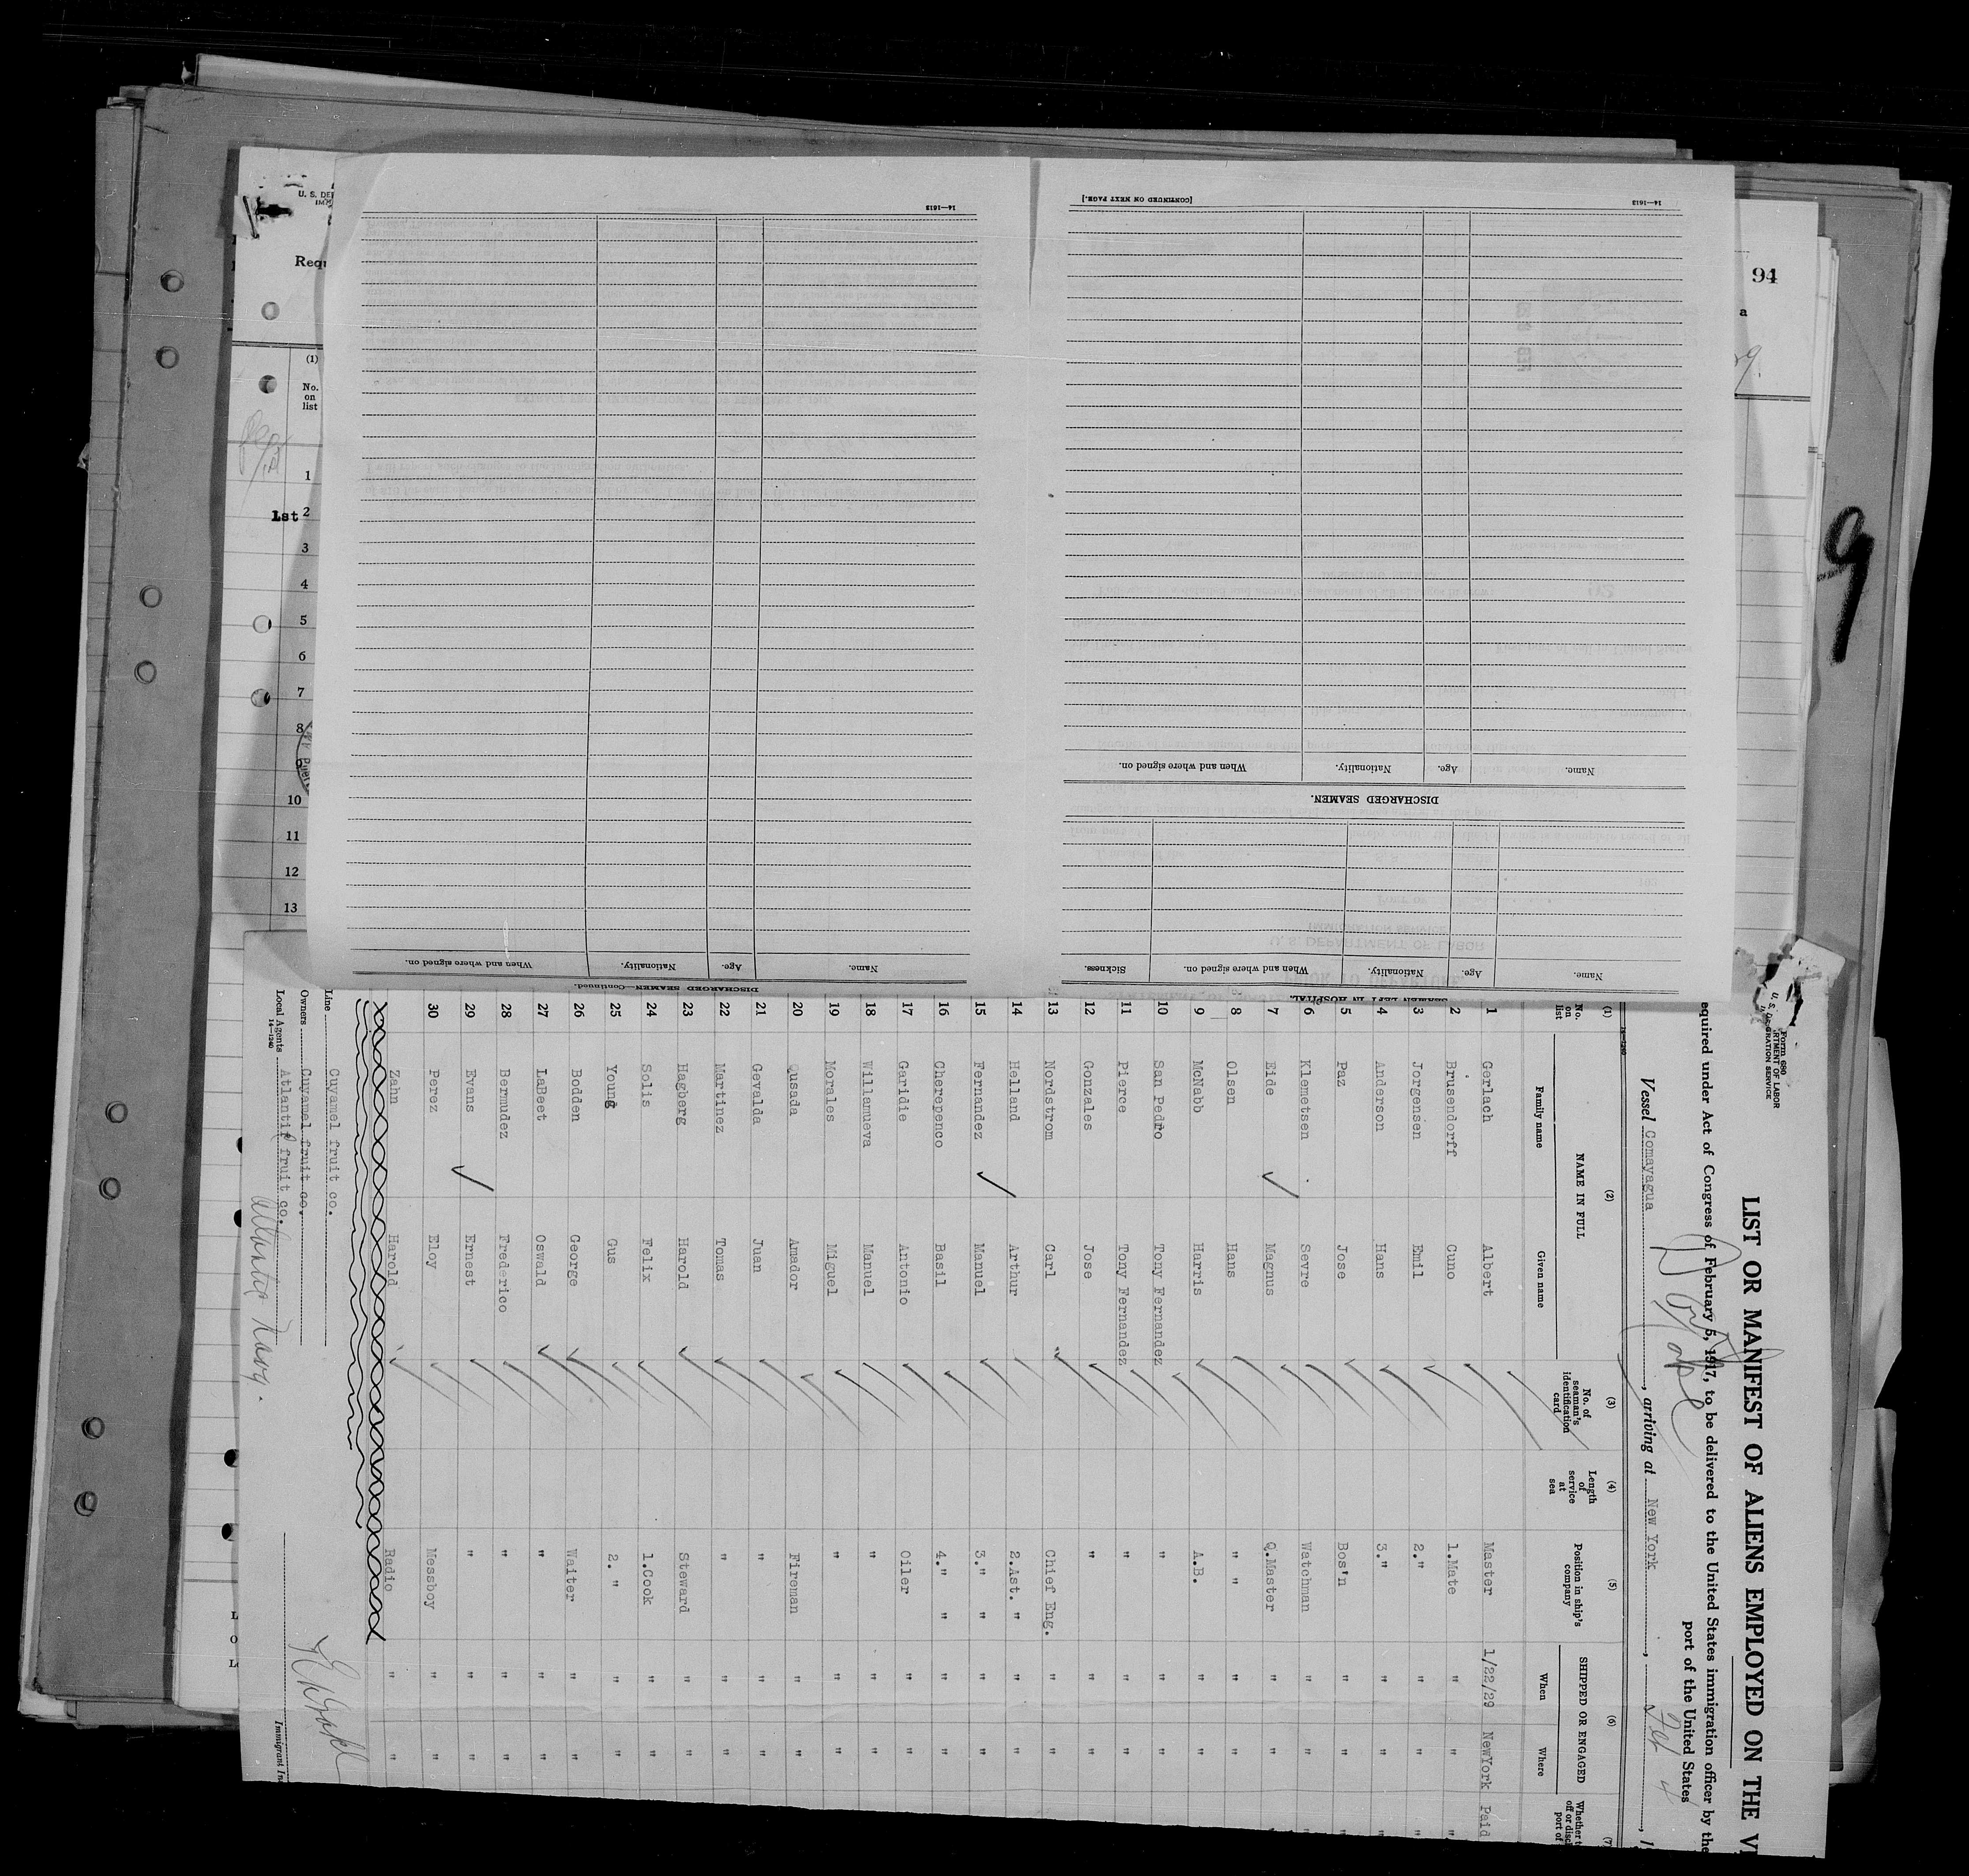 Form 680
U. S. DEPARTMENT OF LABOR
IMMIGRATION SERVICE
LIST OR MANIFEST OF ALIENS EMPLOYED ON THE
equired under Act of Congress of February 5, 1917, to be delivered to the United States immigration officer by the
port of the United States
Vessel Comayagua, arriving at New York, Feb 4, 1
14—1240
(1) (2) (3) (4) (5) (6) (7)
No. on list
NAME IN FULL
Family name Given name
No. of seaman's identification card
Length of service at sea
Position in ship's company
SHIPPED OR ENGAGED
When Where
1 Gerlach Albert Master 1/22/29 NewYork Paid
2 Brusendorff Cuno 1.Mate " " "
3 Jorgensen Emil 2." " " "
4 Anderson Hans 3." " " "
5 Paz Jose Bos'n " " "
6 Klemetsen Sevre Watchman " " "
7 Eide Magnus Q.Master " " "
8 Olsen Hans " " " "
9 McNabb Harris A.B. " "
10 San Pedro Tony Fernandez " " "
11 Pierce Tony Fernandez " " "
12 Gonzales Jose " " "
13 Nordstrom Carl Chief Eng. " "
14 Helland Arthur 2.Ast. " " "
15 Fernandez Manuel 3." " " "
16 Cherepenco Basil 4." " " "
17 Garidie Antonio Oiler " "
18 Willamueva Manuel " " "
19 Morales Miguel " " "
20 Qusada Amador Fireman " "
21 Gevalda Juan " " "
22 Martinez Tomas " " "
23 Hagberg Harold Steward " "
24 Solis Felix 1.Cook " "
25 Young Gus 2. " " "
26 Bodden George Waiter " "
27 LaBeet Oswald " " "
28 Bermudez Frederico " " "
29 Evans Ernest " " "
30 Perez Eloy Messboy " "
Zahn Harold Radio " "
Line Cuyamel fruit co.
Owners Cuyamel fruit co.
Local Agents Atlantif fruit co.
14—1240
Atlantic Navg.
Immigrant In
SEAMEN LEFT IN HOSPITAL.
Name. Age. Nationality. When and where signed on. Sickness.
DISCHARGED SEAMEN.
Name. Age. Nationality. When and where signed on.
14—1613
[CONTINUED ON NEXT PAGE.]
DISCHARGED SEAMEN—Continued.
Name. Age. Nationality. When and where signed on.
14—1613
U. S. DE
Requ
(1)
No. on list
1st
1
2
3
4
5
6
7
8
9
10
11
12
13
94
a
9